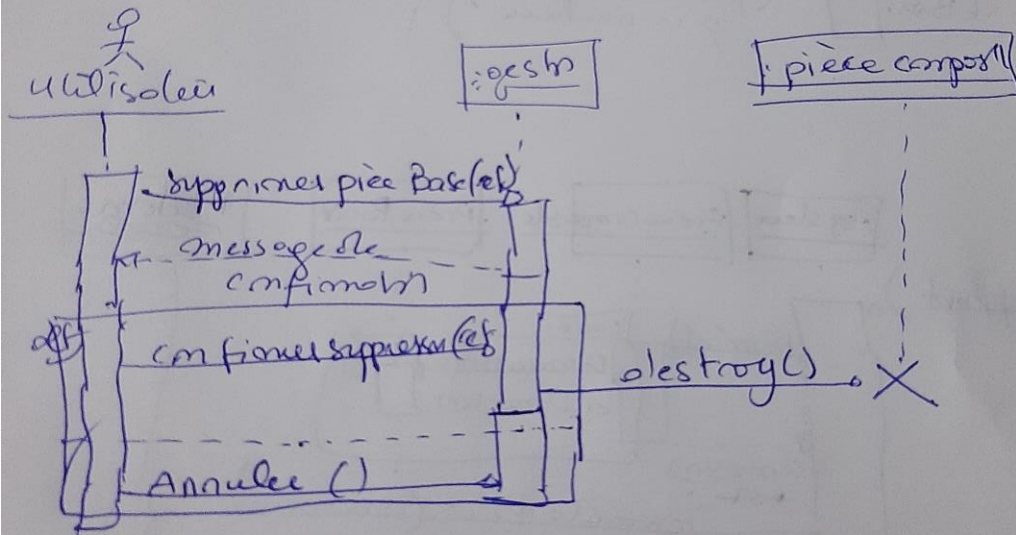 utilisateur
:gestn
: pièce compos
supprimer pièce Base(ref)
message de
confirmatn
confirmer suppression(ref
destroy()
Annuler ()